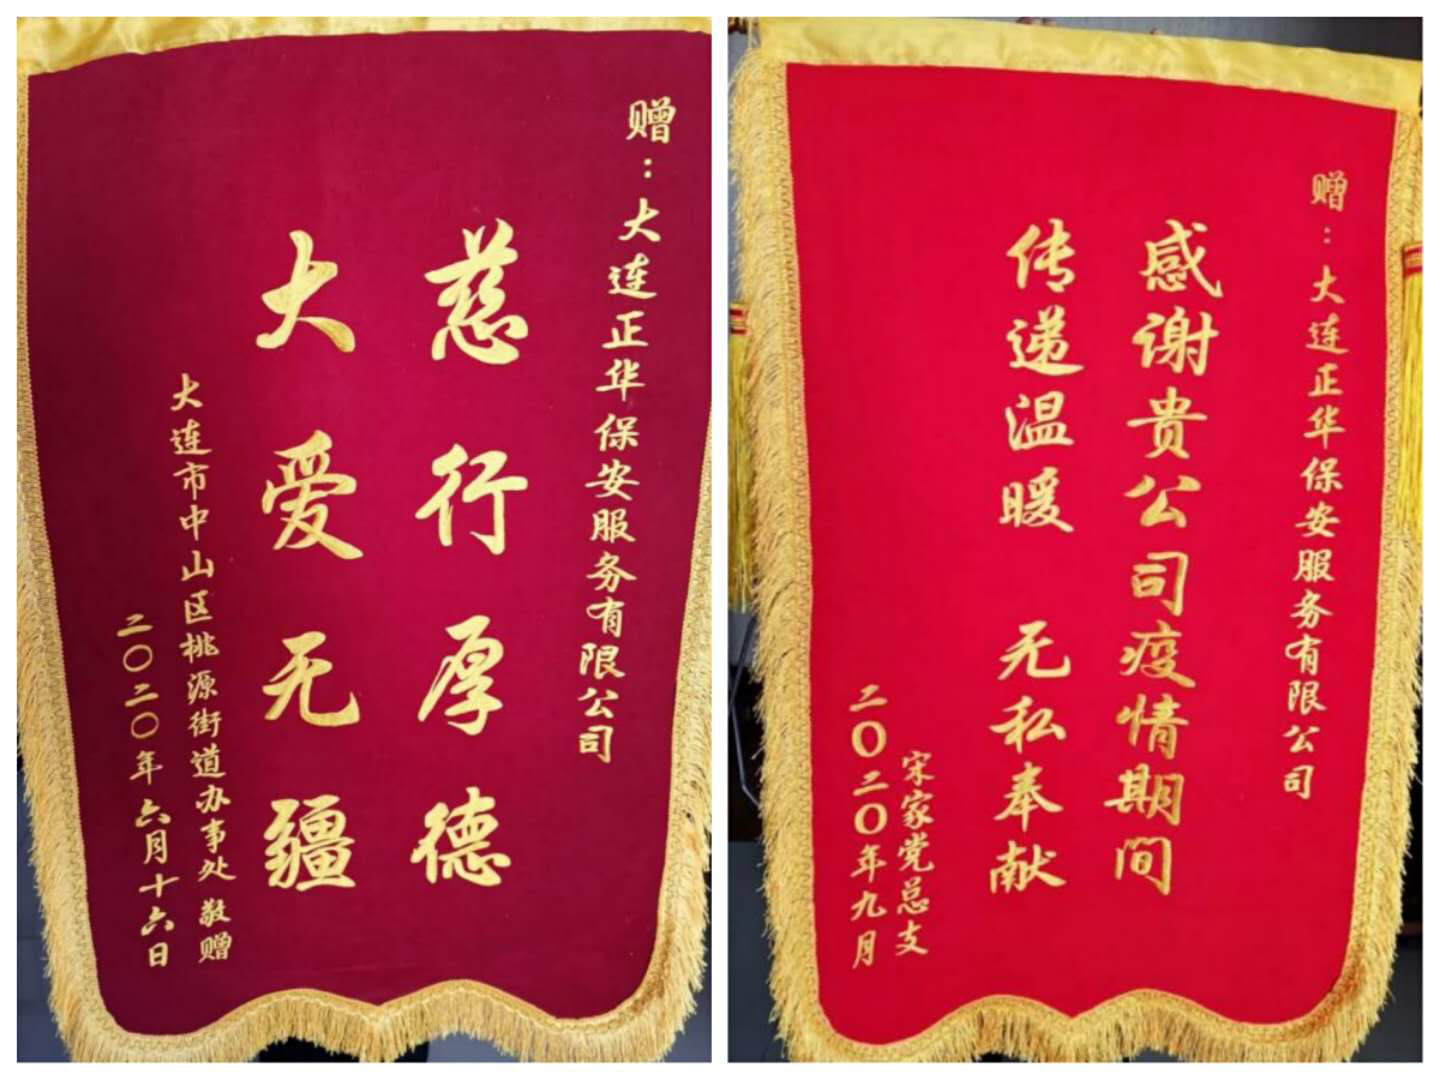 赠：大连正华保安服务有限公司
慈行厚德
大爱无疆
大连市中山区桃源街道办事处 敬赠
二〇二〇年六月十六日
赠：大连正华保安服务有限公司
感谢贵公司疫情期间
传递温暖 无私奉献
宋家党总支
二〇二〇年九月